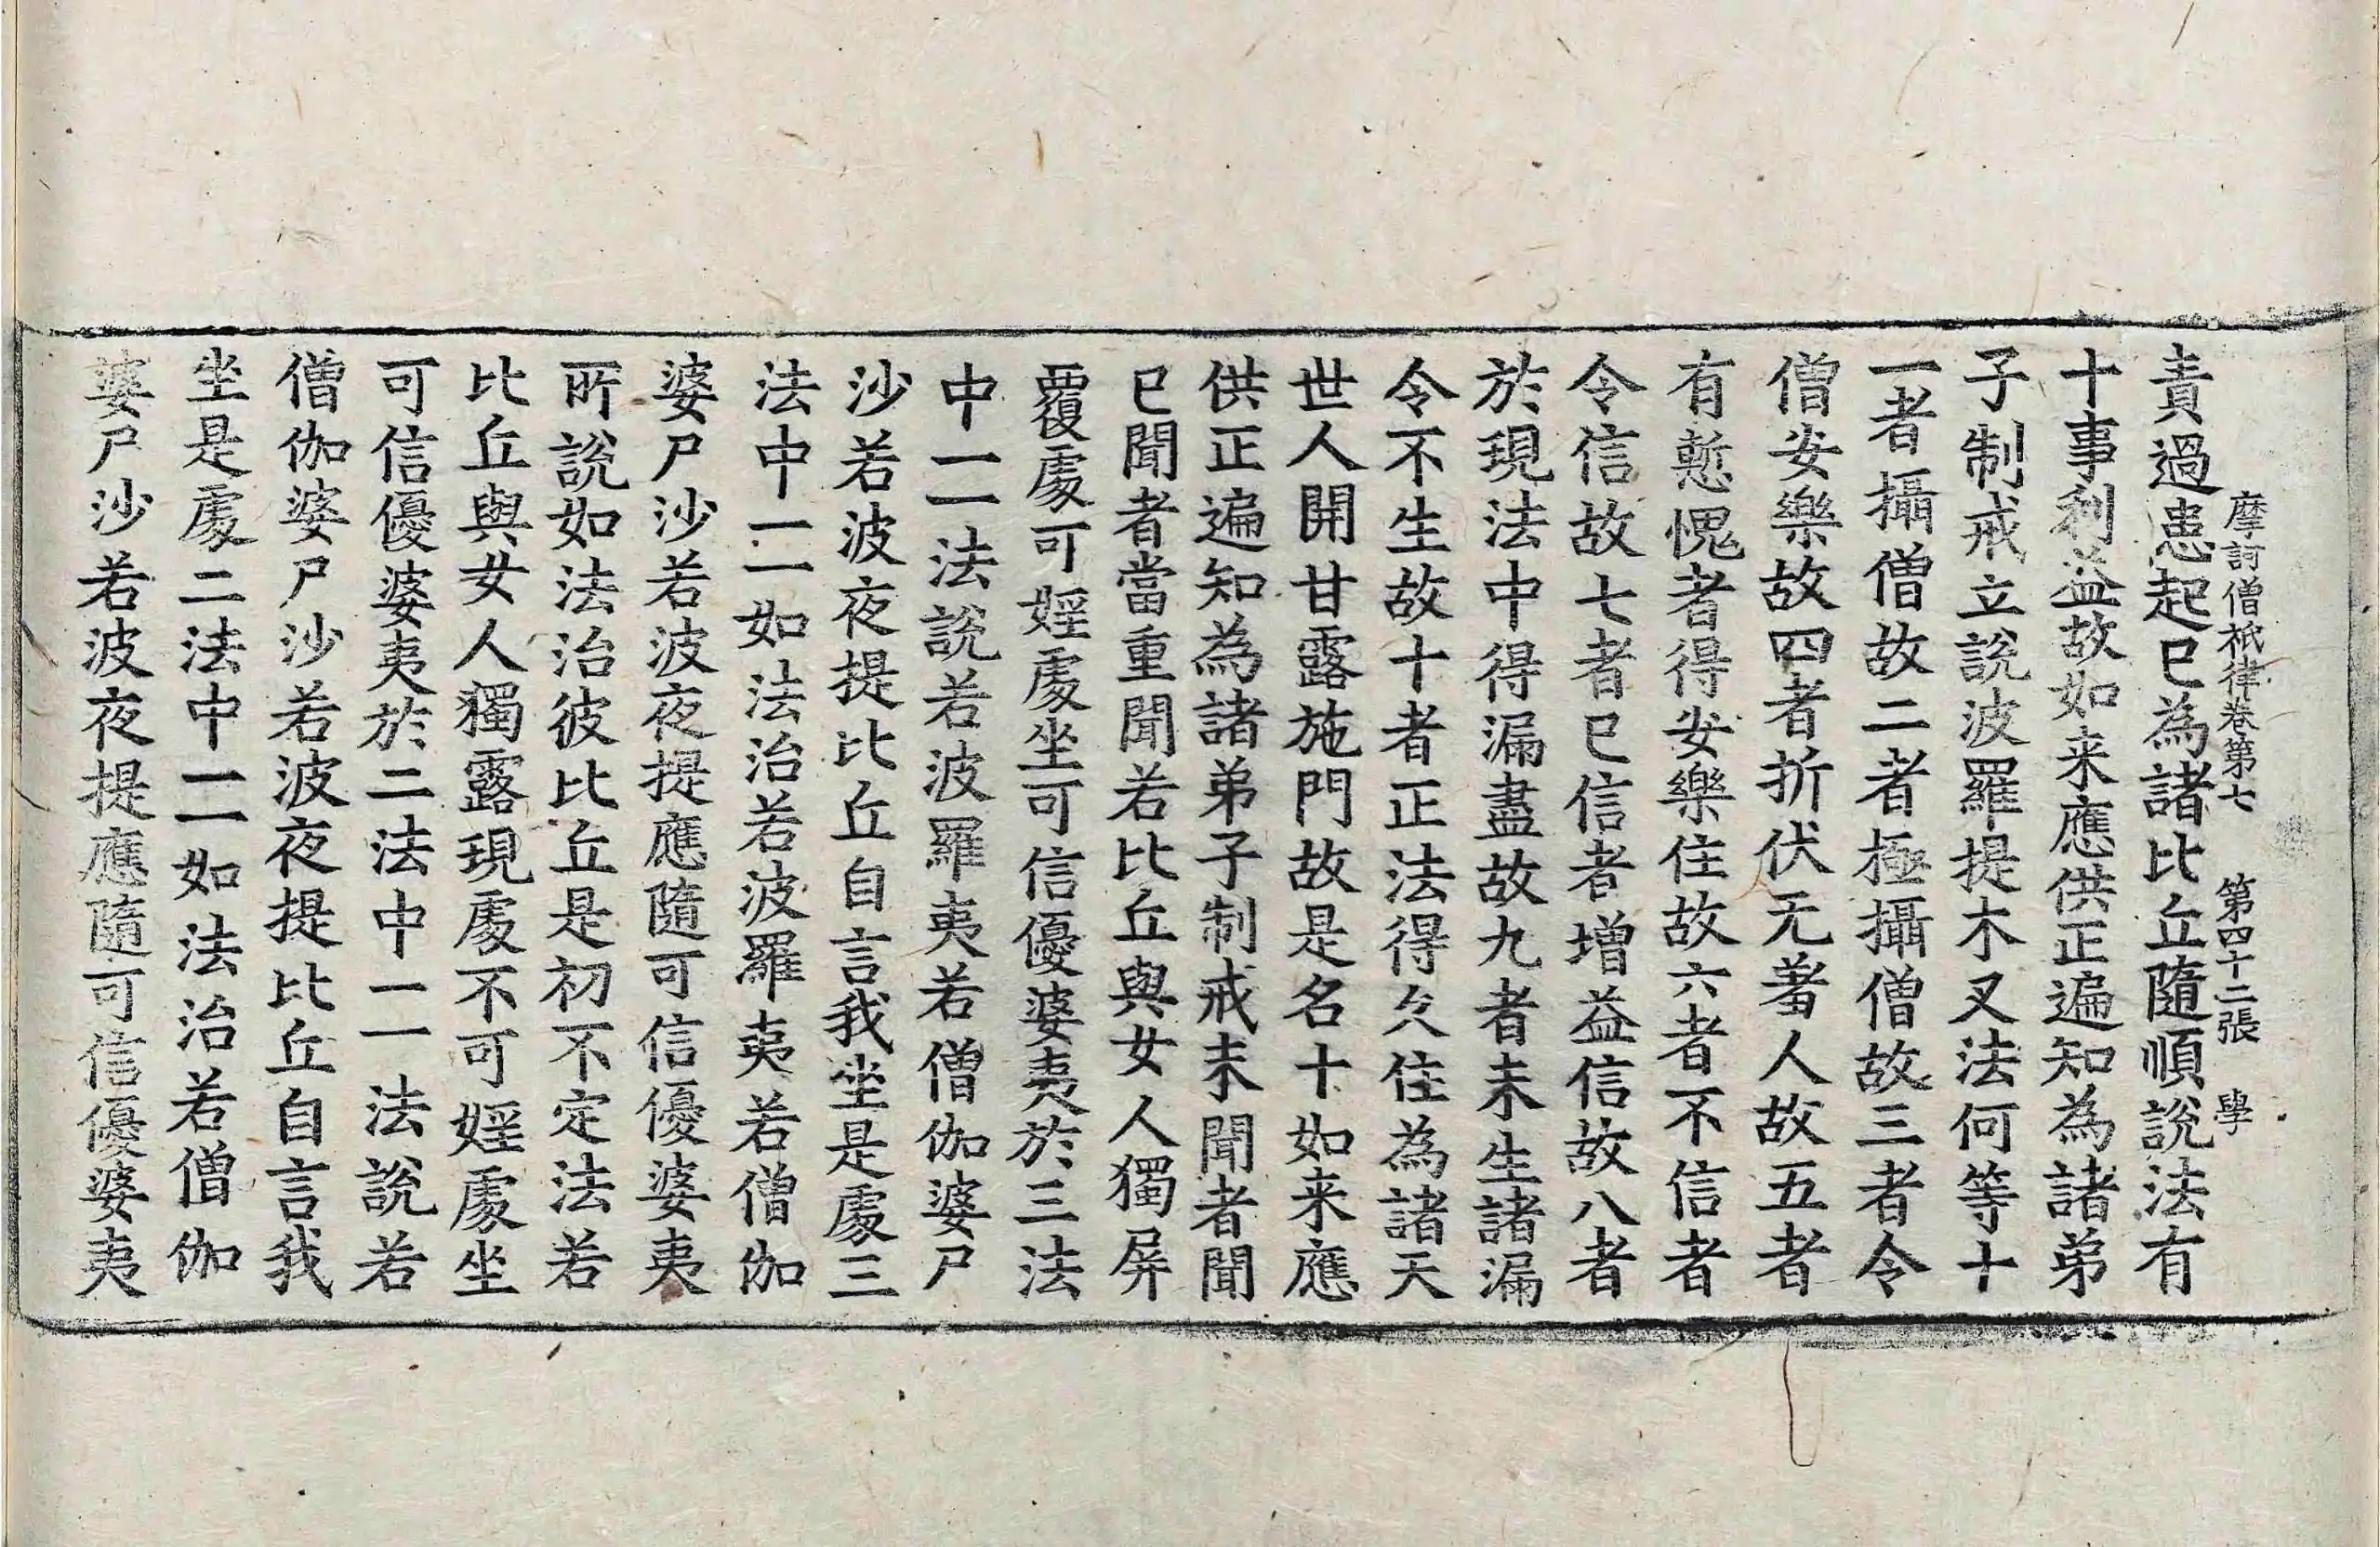 摩訶僧祇律卷第七 第四十二張 學
責過患起已為諸比丘隨順說法有
十事利益故如来應供正遍知為諸弟
子制戒立說波羅提木叉法何等十
一者攝僧故二者極攝僧故三者令
僧安樂故四者折伏无羞人故五者
有慙愧者得安樂住故六者不信者
令信故七者已信者增益信故八者
於現法中得漏盡故九者未生諸漏
令不生故十者正法得久住為諸天
世人開甘露施門故是名十如来應
供正遍知為諸弟子制戒未聞者聞
已聞者當重聞若比丘與女人獨屏
覆處可婬處坐可信優婆夷於三法
中一一法說若波羅夷若僧伽婆尸
沙若波夜提比丘自言我坐是處三
法中一一如法治若波羅夷若僧伽
婆尸沙若波夜提應隨可信優婆夷
所說如法治彼比丘是初不定法若
比丘與女人獨露現處不可婬處坐
可信優婆夷於二法中一一法說若
僧伽婆尸沙若波夜提比丘自言我
坐是處二法中一一如法治若僧伽
婆尸沙若波夜提應隨可信優婆夷